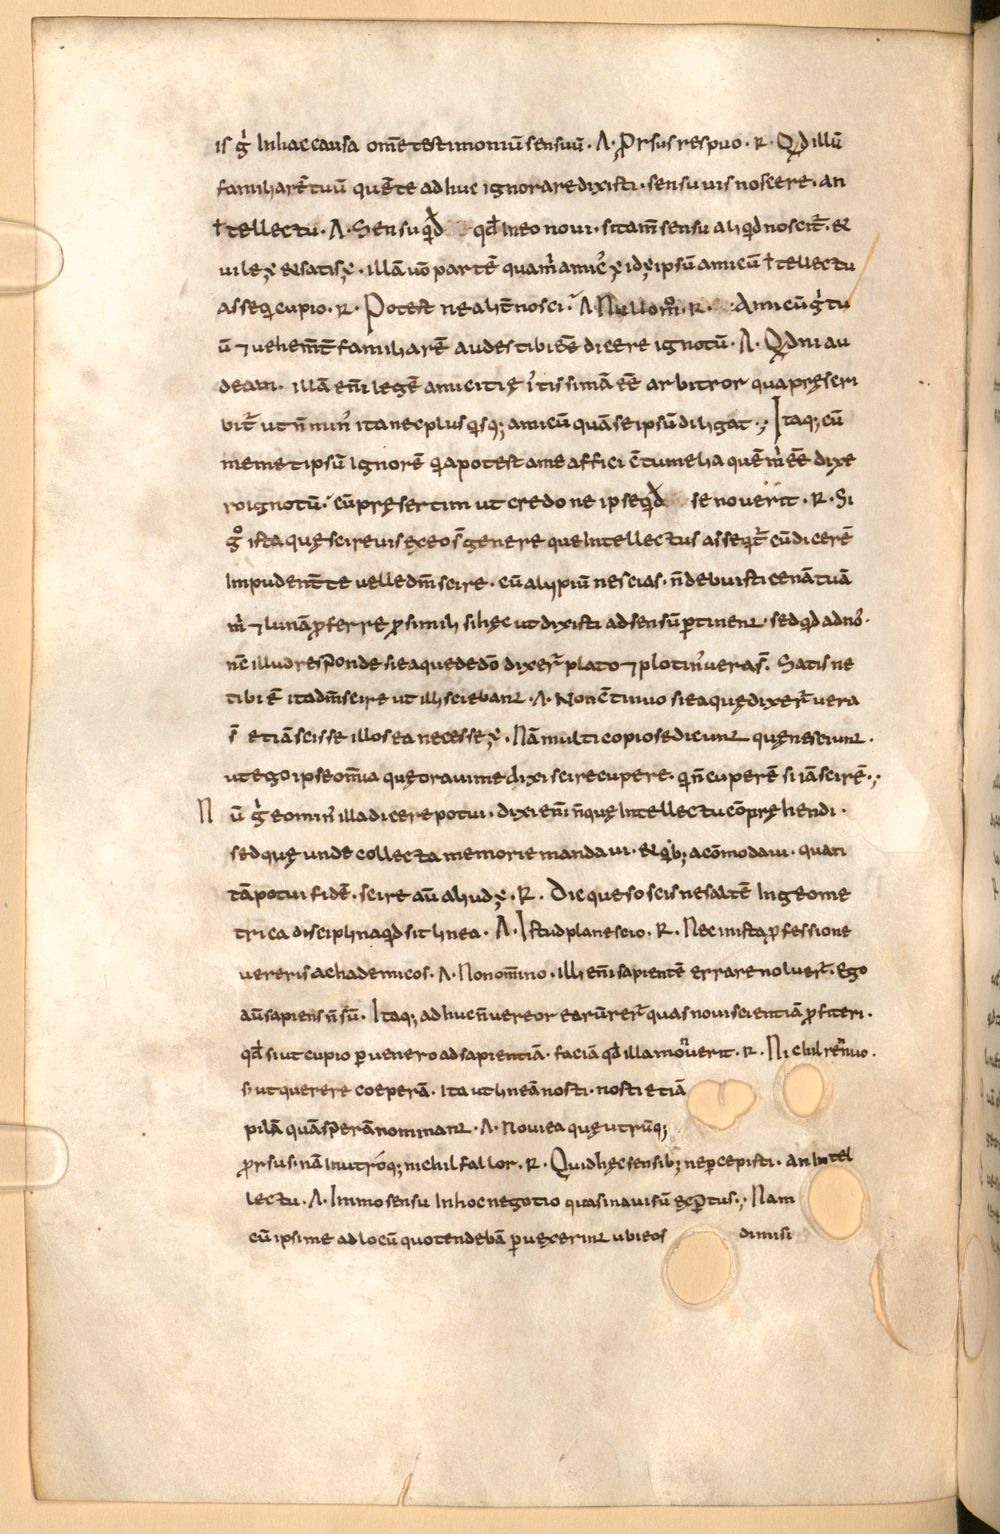 is gͥ Inhac causa om̅e testimoniū sensuū · A · P̱rsus respuo · R · Qd illū
familiarē tuū quē te adhuc ignorare dixisti · sensu uis noscere · an
ītellectu · A · Sensu qd̵ qd̵ In eo noui · si tam̅ sensu aliqd noscit̅ · &
uile ÷ & satis ÷ · illā uō partē qua m̍ amic᾿ ÷ id ÷ ipsū amicū ītellectu
asseqi cupio · R · Potest ne alit̅ nosci · A Nullom̊ · R · Amicū gͥ tu
ū ⁊ uehem̅t familiarē audes tibi ēē dicere ignotū · A · Qdni au
deam · illā em̅ legē amicitię īstissimā ēē arbitror qua pręscri
bit̅ ut n̅ min᾿ ita nec plus qisq; amicū quā se ipsū diligat ·,· Itaq; cū
memet ipsū Ignorē qia potest a me affici c̅tumelia quē m̍ ēē dixe
ro ignotū · cū pręsertim ut credo ne ipse qd̵ se nouerit · R · Si
gͦ ista quę scire uis ex eo s̅ genere que Intellectus asseqt̅ cū dicerē
Impudent̅ te uelle dm̅ scire · cū alypiū nescias · n̅ debuisti cenā tuā
m̍ ⁊ lunā p̱ferre p̱ simili si hęc ut dixisti ad sensū p̱tinent · sed qd ad nos ·
n̅c illud responde si ea que de dō dixer̅ plato ⁊ plotin᾿ uera s̅ · Satis ne
tibi ē ita dm̅ scire ut illi sciebant · A · Non c̅tinuo si ea quę dixer̅ uera
s̅ etiā scisse illos ea necesse ÷ · Nā multi copiose dicunt quę nesciunt ·
ut ego ipse om̅ia quę oraui me dixi scire cupere · q n̅ cuperē si iā scirē ·,·
Nū gͥ eo min᾿ illa dicere potui · dixi em̅ n̅ que Intellectu cōprehendi ·
sed quę unde collecta memorie mandaui · & qb; acōmodaui · quan
tā potui fidē · scire aū aliud ÷ · R · Dic queso scis ne saltē In geome
trica disciplina qd sit linea · A · Istud plane scio · R · Nec in ista p̱fessione
uereris achademicos · A · Non om̅ino · illi em̅ sapientē errare noluer̅ · Ego
aū sapiens n̅ sū · Itaq; adhuc n̅ uereor earū rer̅ quas noui scientiā p̱fiteri ·
qd̵ si ut cupio p̱uenero ad sapientiā · faciā qd̵ illa monuerit · R · Nichil rennuo ·
s; ut querere coeperā · ita ut lineā nosti · nosti etiā
pilā quā sperā nominant · A · Noui ea quę utrūq;
p̱rsus · nā In utroq; nichil fallor · R · Quid hęc sensib; ne p̱cepisti · an Intel
lectu · A · Immo sensu In hoc negotio quasi naui sū exp̱tus ·,· Nam
cū ipsi me ad locū quo tendebā p̱uexerint ubi eos dimisi